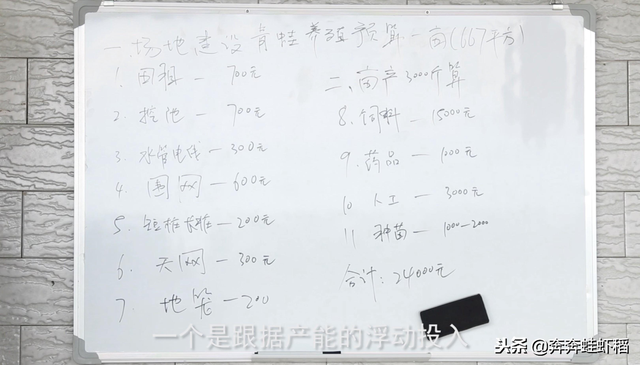 一、场地建设青蛙养殖预算一亩(667平方)
1. 田租 — 700元
2. 挖池 — 700元
3. 水管电线 — 300元
4. 围网 — 600元
5. 短桩长桩 — 200元
6. 天网 — 300元
7. 地笼 — 200
二、亩产3000斤算
8. 饲料 — 15000元
9. 药品 — 1000元
10 人工 — 3000元
11 种苗 — 1000-2000
合计：24000元
一个是跟据产能的浮动投入
头条 @奔奔蛙虾稻